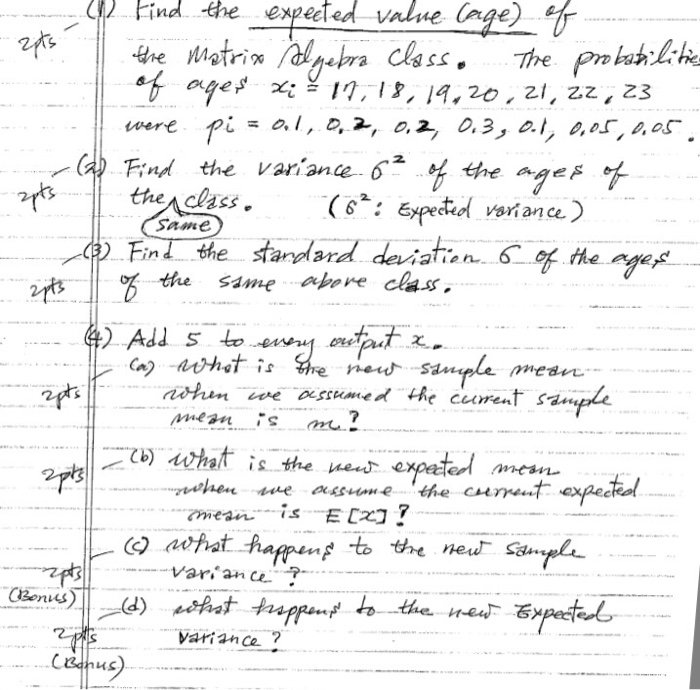 (1) Find the expected value (age) of
2pts the Matrix Algebra Class. The probabilities
of ages xi = 17, 18, 19, 20, 21, 22, 23
were pi = 0.1, 0.2, 0.2, 0.3, 0.1, 0.05, 0.05.
(2) Find the variance σ² of the ages of
2pts the class. (σ²: Expected variance)
same
(3) Find the standard deviation σ of the ages
2pts of the same above class.
(4) Add 5 to every output x.
(a) what is the new sample mean
2pts when we assumed the current sample
mean is m?
(b) what is the new expected mean
2pts when we assume the current expected
mean is E[x]?
(c) what happens to the new sample
2pts variance?
(Bonus) (d) what happens to the new Expected
2pts variance?
(Bonus)